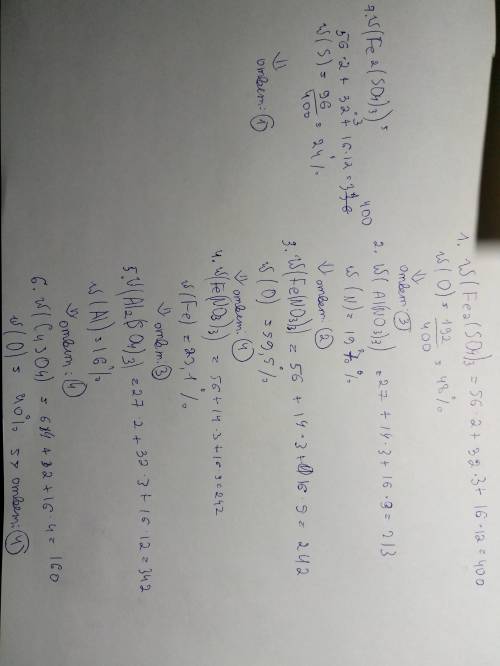 1. W(Fe2(SO4)3 = 56·2 + 32·3 + 16·12 = 400
W(O) = 192/400 = 48%
⇓
ответ: ③
2. W(Al(NO3)3) = 27 + 14·3 + 16·9 = 213
W(N) = 19,7%
⇓
ответ: ②
3. W(Fe(NO3)3) = 56 + 14·3 + 16·9 = 242
W(O) = 59,5%
⇓ ответ: ④
4. W(Fe(NO3)3) = 56 + 14·3 + 16·9 = 242
W(Fe) = 23,1%
⇓
ответ: ③
5. W(Al2(SO4)3) = 27·2 + 32·3 + 16·12 = 342
W(Al) = 16%
⇓
ответ: ④
6. W(CuSO4) = 64 + 32 + 16·4 = 160
W(O) = 40% => ответ: ④
7. W(Fe2(SO4)3)
56·2 + 32·3 + 16·12 = 400
W(S) = 96/400 = 24%
⇓
ответ: ①